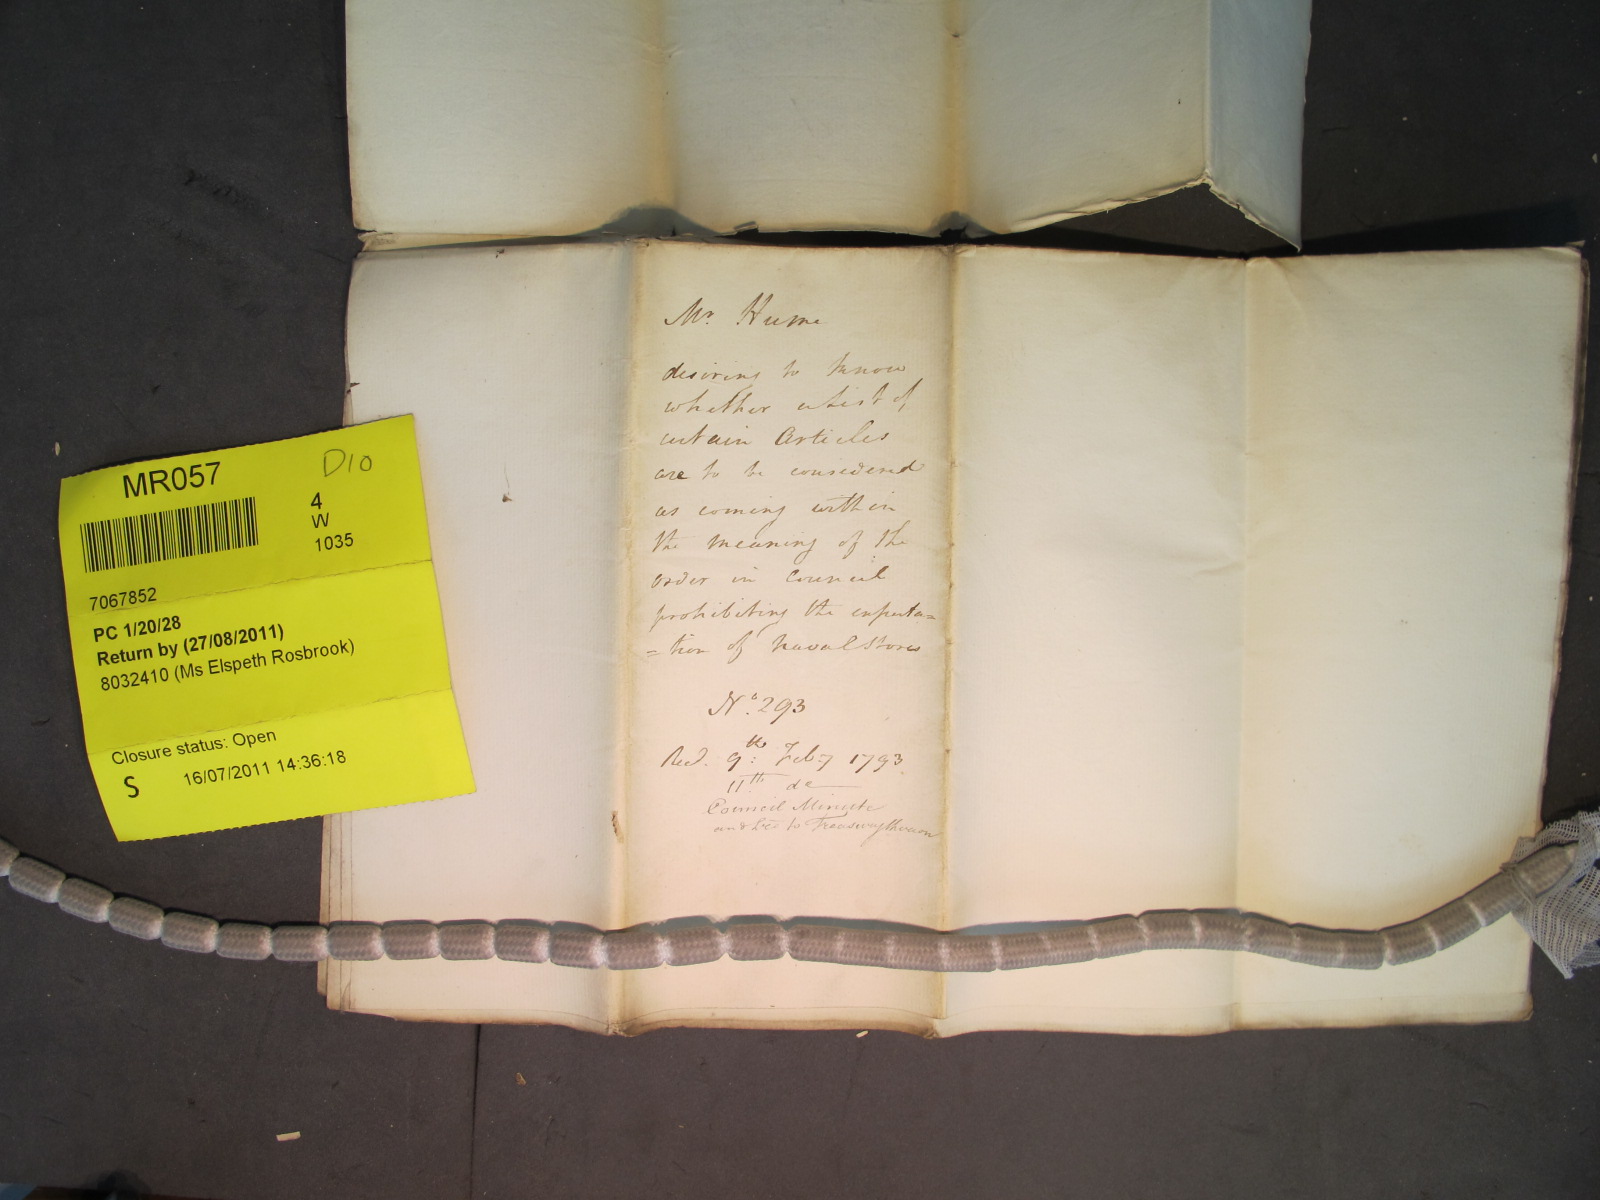 Mr. Hume
desiring to know
whether a List of
certain Articles
are to be considered
as coming within
the meaning of the
order in Council
prohibiting the exporta=
=tion of Naval Stores
No. 293
Recd. 9th: Feby 1793
11th do
Council Minute
and Lre to Treasury thereon
MR057
D10
4
W
1035
7067852
PC 1/20/28
Return by (27/08/2011)
8032410 (Ms Elspeth Rosbrook)
Closure status: Open
S 16/07/2011 14:36:18